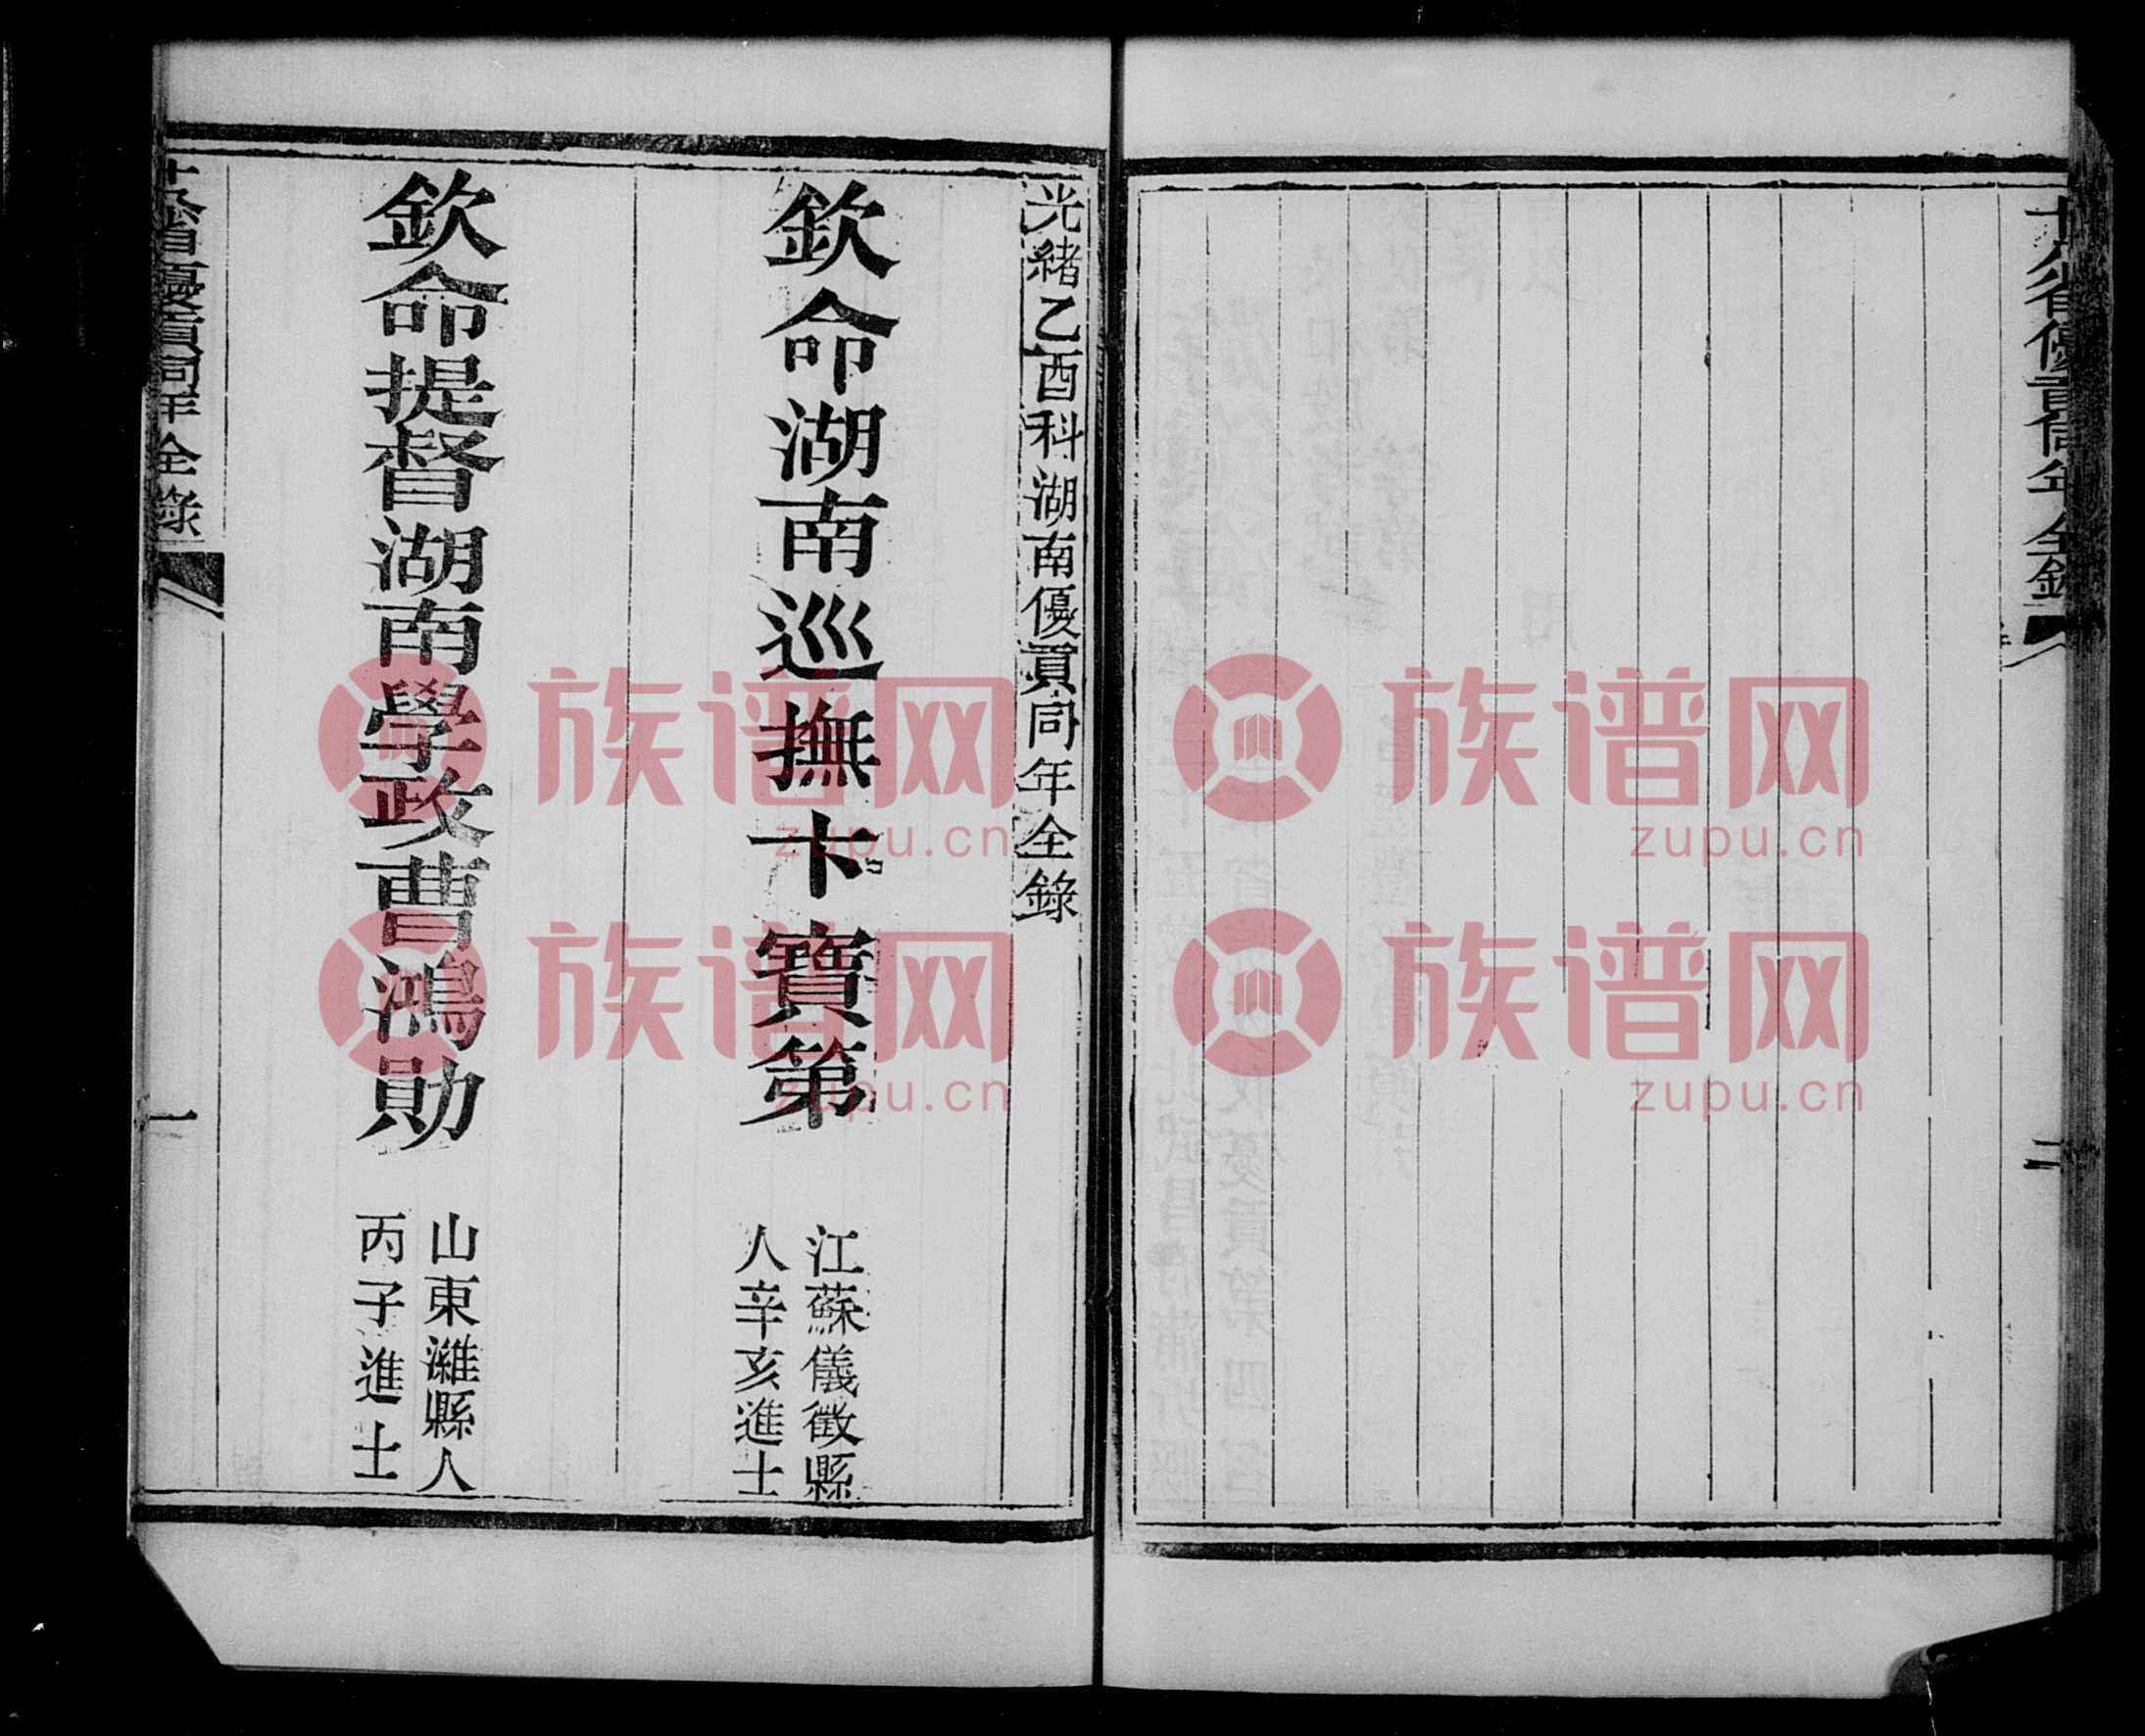 十八省優貢同年全錄
二
光緒乙酉科湖南優貢同年全錄
欽命湖南巡撫卞寶第
江蘇儀徵縣
人辛亥進士
欽命提督湖南學政曹鴻勛
山東濰縣人
丙子進士
十八省優貢同年全錄
一
族谱网
zupu.cn
族谱网
zupu.cn
族谱网
zupu.cn
族谱网
zupu.cn